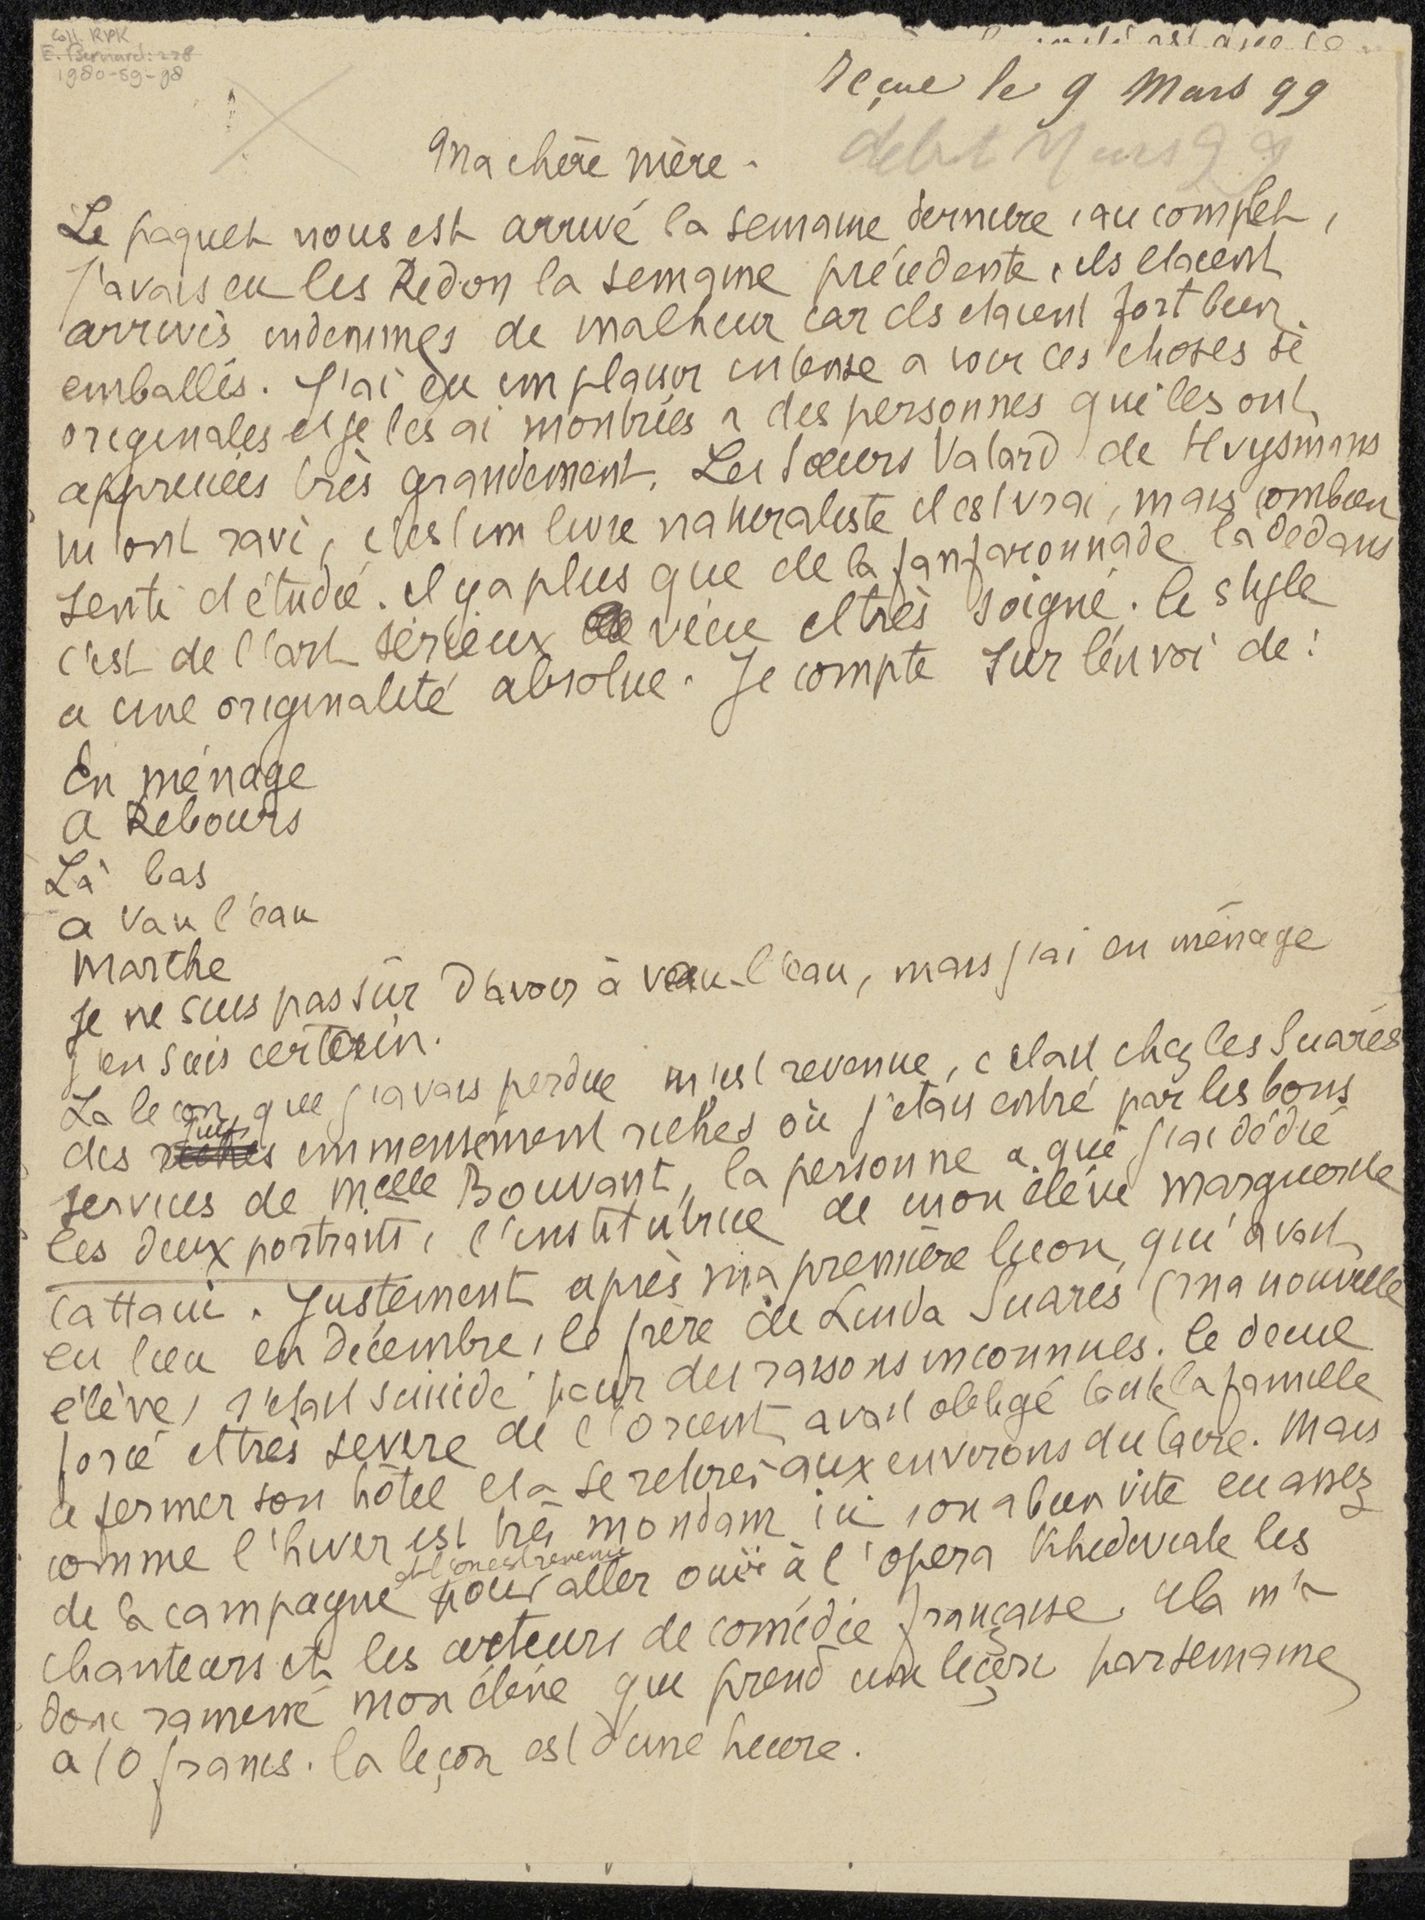 Coll. RPK
E. Bernard: 228
1980-59-98
reçue le 9 Mars 99
debut Mars 99
Ma chère mère.
Le paquet nous est arrivé la semaine dernière, au complet,
j'avais eu les Redon la semaine précédente, ils etaient
arrivés indemmes de malheur car ils etaient fort bien
emballés. J'ai eu un plaisir intense a voir ces choses si
originales et je les ai montrées a des personnes qui les ont
appreciées très grandement. Les Sœurs Vatard de Huysmans
m'ont ravi, c'est un livre naturaliste il est vrai, mais combien
senti d'étudié. il y a plus que de la fanfaronnade là dedans
c'est de l'art sérieux vécu et très soigné. le style
a une originalité absolue. Je compte sur l'envoi de:
En ménage
a Rebours
Là bas
a vau l'eau
Marthe
Je ne suis pas sûr d'avoir à vau-l'eau, mais j'ai en ménage
j'en suis certain.
La leçon que j'avais perdue m'est revenue, c'etait chez les Suarès
des riches juifs immensément riches où j'etais entré par les bons
services de Melle Bouvant, la personne a qui j'ai dédié
les deux portraits, l'institutrice de mon élève Marguerite
Cattaui. Justement après ma première leçon, qui avait
eu lieu en décembre, le frère de Linda Suarès (ma nouvelle
élève) s'etait suicidé pour des raisons inconnues. le deuil
forcé et très sevère de l'Orient avait obligé toute la famille
a fermer son hôtel et a se retirer aux environs du Caire. Mais
comme l'hiver est très mondain ici, on a bien vite eu assez
de la campagne et l'on est revenu pour aller ouïr à l'opera Khedivial les
chanteurs et les acteurs de comédie française. cela m'a
donc ramené mon élève qui prend une leçon par semaine
a 10 francs. la leçon est d'une heure.